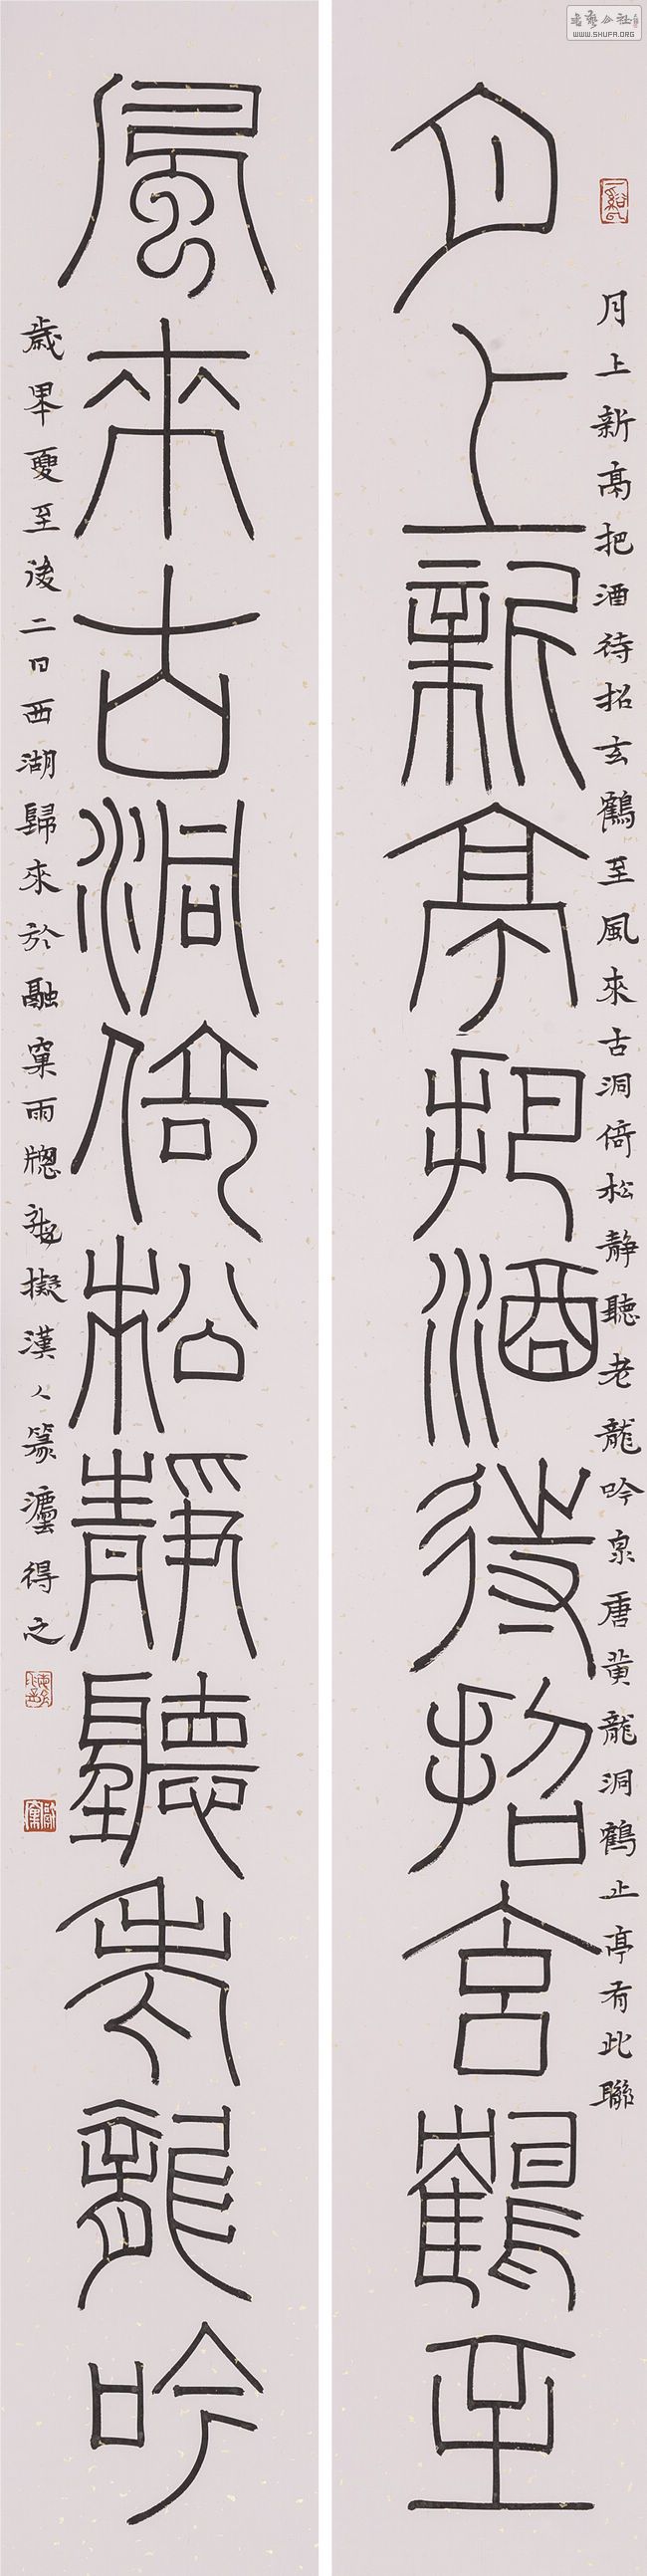 月上新亭把酒待招玄鶴至風來古洞倚松静聽老龍吟泉唐黄龍洞鶴止亭有此聯
月上新亭把酒待招玄鶴至
風來古洞倚松靜聽老龍吟
歲夏至後二日西湖歸來於融窠雨牕擬漢人篆灋得之
WWW.SHUFA.ORG